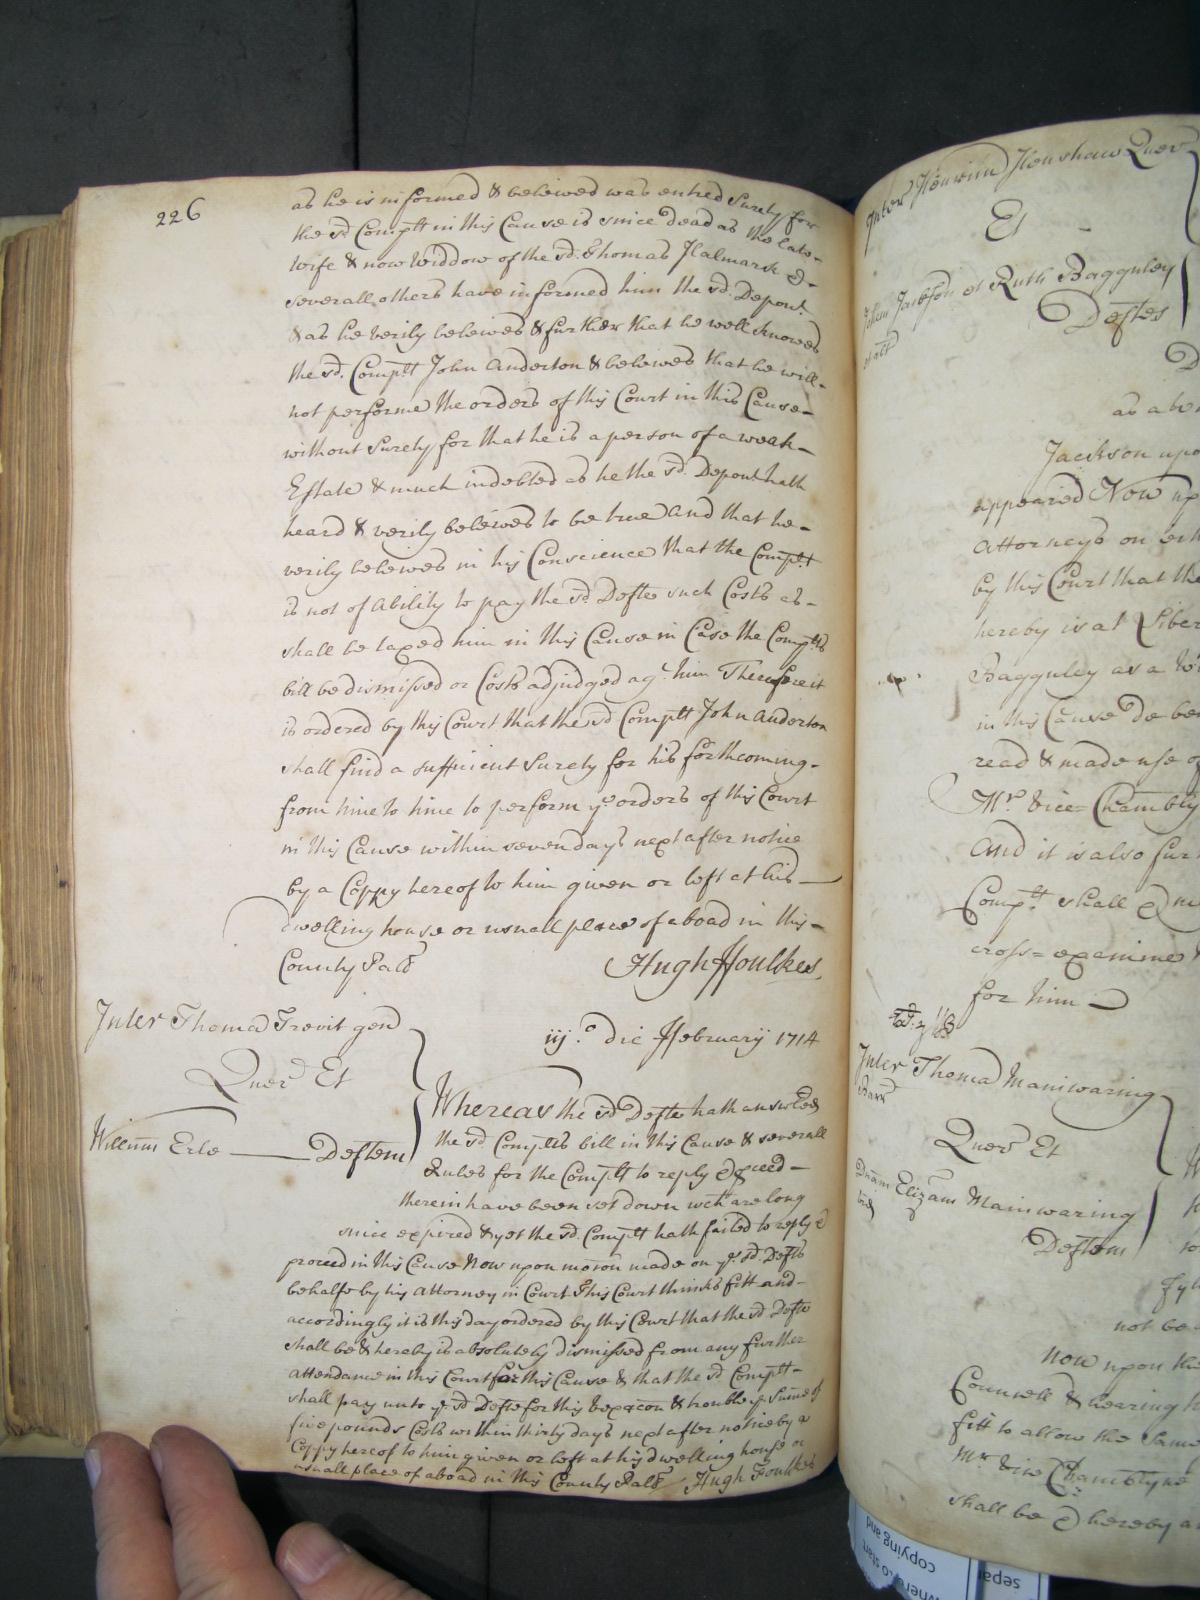 226
as he is informed & beleived was entred Surety for
the sd Complt in this Cause is since dead as the late-
Wife & now Widdow of the sd Thomas Halmark &-
severall others have informed him the sd. Depont
& as he verily beleives & further that he well knowes
the sd. Complt John Anderton & beleives that he will-
not performe the orders of this Court in this Cause-
without Surety for that he is a person of a weak-
Estate & much indebted as he the sd. Depont hath
heard & verily beleives to be true and that he-
verily beleives in his Conscience that the Complt
is not of Ability to pay the sd Defte such Costs as-
shall be taxed him in this Cause in Case the Complts
bill be dismissed or Costs adjudged agt him Therefore it
is ordered by this Court that the sd Complt John Anderton
shall find a sufficient Surety for his forthcoming-
from time to time to perform ye orders of this Court
in this Cause within seven days next after notice
by a Coppy hereof to him given or left at his
dwelling house or usuall place of aboad in this-
County Pals
Hugh Ffoulkes
Inter Thoma Trevit gen
Quer Et
Willium Erle Deftem
iij.o die Ffebruarij 1714
Whereas the sd Defte hath answered
the sd Complts bill in this Cause & severall
Rules for the Complt to reply & pceed-
therein have been set down wch are long
since expired & yet the sd. Complt hath failed to reply &
proceed in this Cause Now upon motion made on ye sd. Defts
behalfe by his Attorney in Court This Court thinks fitt and-
accordingly it is this day ordered by this Court that the sd Defte
shall be & hereby is absolutely dismissed from any further
attendance in this Court for this Cause & that the sd Complt-
shall pay unto ye sd Defte for this vexacon & trouble ye Sume of
five pounds Costs within thirty days next after notice by a
Coppy hereof to him given or left at his dwelling house or
usuall place of aboad in this County Pals Hugh Foulkes
Inter Henshaw Quer
Et
Jackson et Ruth Bagguley
Deftes
as
Jackson upo
appeared Now up
Attorneys on
by this Court that the
hereby is at Liber
Bagguley as a
in this Cause De be
read & made use of
Mr. Vice=
And it is also fur
Complt shall
cross=examine
for him
Inter Thoma Maniwaring
Barr
Quer Et
Elizam Maniwaring
Deftem
not be
Now upon the
Councell & hearing
fitt to allow the same
Mr Vice
shall be & hereby
copying and
where to start
separ